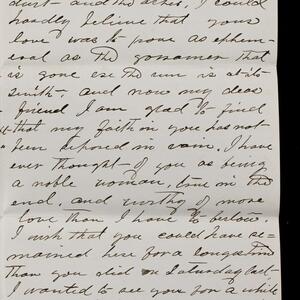 dust - and the ashes, I could
hardly believe that your
love was to prove as ephem-
eral as the gossamer that
is gone ere the sun is at its
zenith - and now my dear
friend I am glad to find
that my faith in you has not
been reposed in vain. I have
ever thought of you as being
a noble woman, true in the
end, and worthy of more
love than I have to bestow.
I wish that you could have re-
mained here for a longer time
than you did on Saturday last -
I wanted to see you for a while